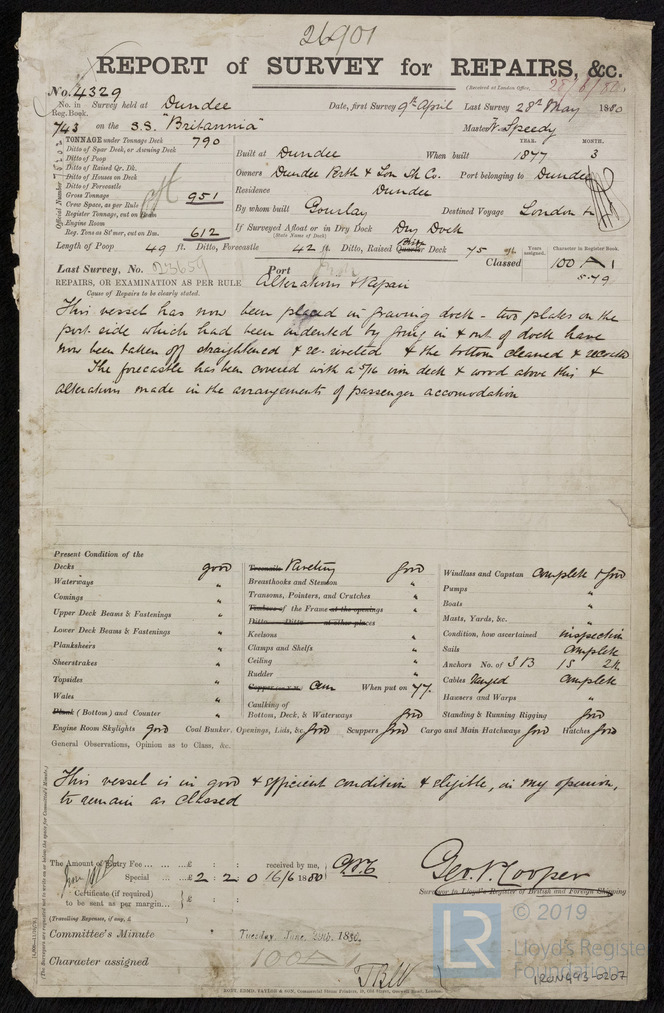 26901
REPORT of SURVEY for REPAIRS, &c.
(Received at London Office,
No. 4329
No. in Survey held at Dundee Date, first Survey 9th April Last Survey 28th May 1880
Reg. Book.
743 on the S.S. "Britannia" Master W. Speedy
TONNAGE under Tonnage Deck 790
Ditto of Spar Deck, or Awning Deck
Ditto of Poop
Ditto of Raised Qr. Dk.
Ditto of Houses on Deck
Ditto of Forecastle
Gross Tonnage 951
Crew Space, as per Rule
Register Tonnage, cut on Beam
Engine Room
Reg. Tons as St'mer, cut on Bm. 612
Official Number
YEAR. MONTH.
Built at Dundee When built 1877 3
Owners Dundee Perth & Lon Sh Co. Port belonging to Dundee
Residence Dundee
By whom built Gourlay Destined Voyage London
If Surveyed Afloat or in Dry Dock Dry Dock
(State Name of Dock)
Length of Poop 49 ft. Ditto, Forecastle 42 ft. Ditto, Raised Quarter Deck 75 ft.
Years assigned. Character in Register Book.
Classed 100 A 1
5.79
Last Survey, No. 23659 Port
REPAIRS, OR EXAMINATION AS PER RULE Alterations & Repair
Cause of Repairs to be clearly stated.
This vessel has now been placed in graving dock - two plates on the
port side which had been indented by going in & out of dock have
now been taken off straightened & re-riveted & the bottom cleaned & recoated
The forecastle has been covered with a 5/16 iron deck & wood above this &
alterations made in the arrangements of passenger accomodation
Present Condition of the
Decks good
Waterways "
Comings "
Upper Deck Beams & Fastenings "
Lower Deck Beams & Fastenings "
Planksheers "
Sheerstrakes "
Topsides "
Wales "
Plank (Bottom) and Counter "
Treenails Riveting good
Breasthooks and Stemson "
Transoms, Pointers, and Crutches "
Timbers of the Frame at the openings "
Ditto Ditto at other places
Keelsons "
Clamps and Shelfs "
Ceiling "
Rudder "
Copper (or Y.M.) Cem When put on 77.
Caulking of
Bottom, Deck, & Waterways good
Windlass and Capstan Complete & good
Pumps "
Boats "
Masts, Yards, &c. "
Condition, how ascertained inspection
Sails Complete
Anchors No. of 3 B 1 S 2 K
Cables Ranged Complete
Hawsers and Warps "
Standing & Running Rigging good
Engine Room Skylights good Coal Bunker, Openings, Lids, &c. good Scuppers good Cargo and Main Hatchways good Hatches good
General Observations, Opinion as to Class, &c.
This vessel is in good & efficient condition & eligible, in my opinion,
to remain as classed
The Amount of Entry Fee ... ... £ : : received by me,
Special ... £ 2 : 2 : 0 16/6 1880
Certificate (if required)
to be sent as per margin... £ : :
(Travelling Expenses, if any, £ )
Geo. N. Cooper
Surveyor to Lloyd's Register of British and Foreign Shipping
Committee's Minute Tuesday, June 1880.
Character assigned 100A1
KENT, EDMD. TAYLOR & SON, Commercial Steam Printers, London.
LR
© 2019
Lloyd's Register
Foundation
IRON493-0207